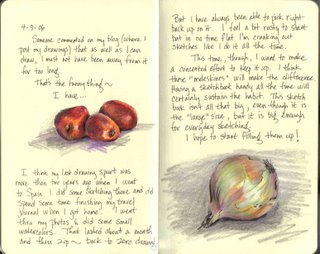 4-3-06
Someone commented on my blog (where I
post my drawings) that as well as I can
draw, I must not have been away from it
for too long.
That's the funny thing ~
I have...
I think my last drawing spurt was
more than two years ago when I went
to Spain. I did some sketching there and did
spend some time finishing my travel
journal when I got home. I went
thru my photos & did some small
watercolors. That lasted about a month
and then zip ~ back to zero drawing.
But I have always been able to pick right
back up on it. I feel a bit rusty to start
but in no time flat I'm cranking out
sketches like I do it all the time.
This time, though, I want to make
a concerted effort to keep it up. I think
these "moleskines" will make the difference.
Having a sketchbook handy all the time will
certainly sustain the habit. This sketch
book isn't all that big, even though it is
the "large" size, but it is big enough
for everyday sketching.
I hope to start filling them up!